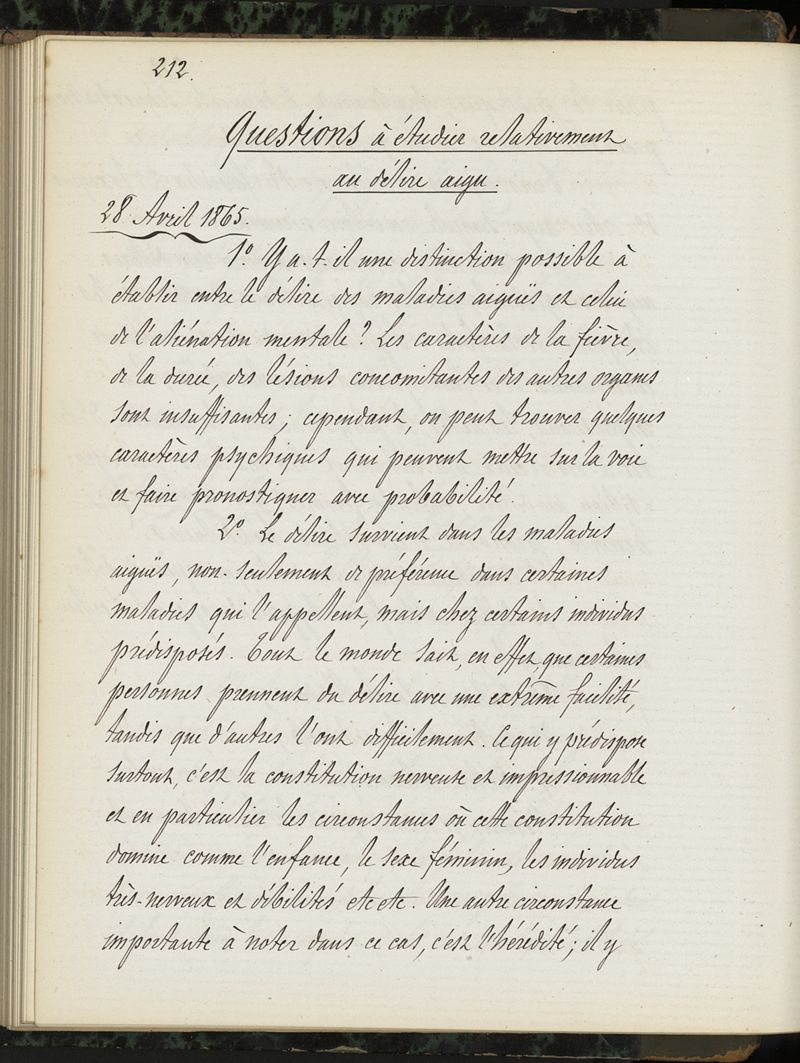 212.
Questions à étudier relativement
au délire aigu.
28 Avril 1865.
1º. Y a-t-il une distinction possible à
établir entre le délire des maladies aiguës et celui
de l'aliénation mentale ? Les caractères de la fièvre,
de la durée, des lésions concomitantes des autres organes
sont insuffisantes ; cependant, on peut trouver quelques
caractères psychiques qui peuvent mettre sur la voie
et faire pronostiquer avec probabilité.
2º. Le délire survient dans les maladies
aiguës, non-seulement de préférence dans certaines
maladies qui l'appellent, mais chez certains individus
prédisposés. Tout le monde sait, en effet, que certaines
personnes prennent du délire avec une extrême facilité,
tandis que d'autres l'ont difficilement. Ce qui y prédispose
surtout, c'est la constitution nerveuse et impressionnable
et en particulier les circonstances où cette constitution
domine comme l'enfance, le sexe féminin, les individus
très-nerveux et débilités etc etc. Une autre circonstance
importante à noter dans ce cas, c'est l'hérédité ; il y